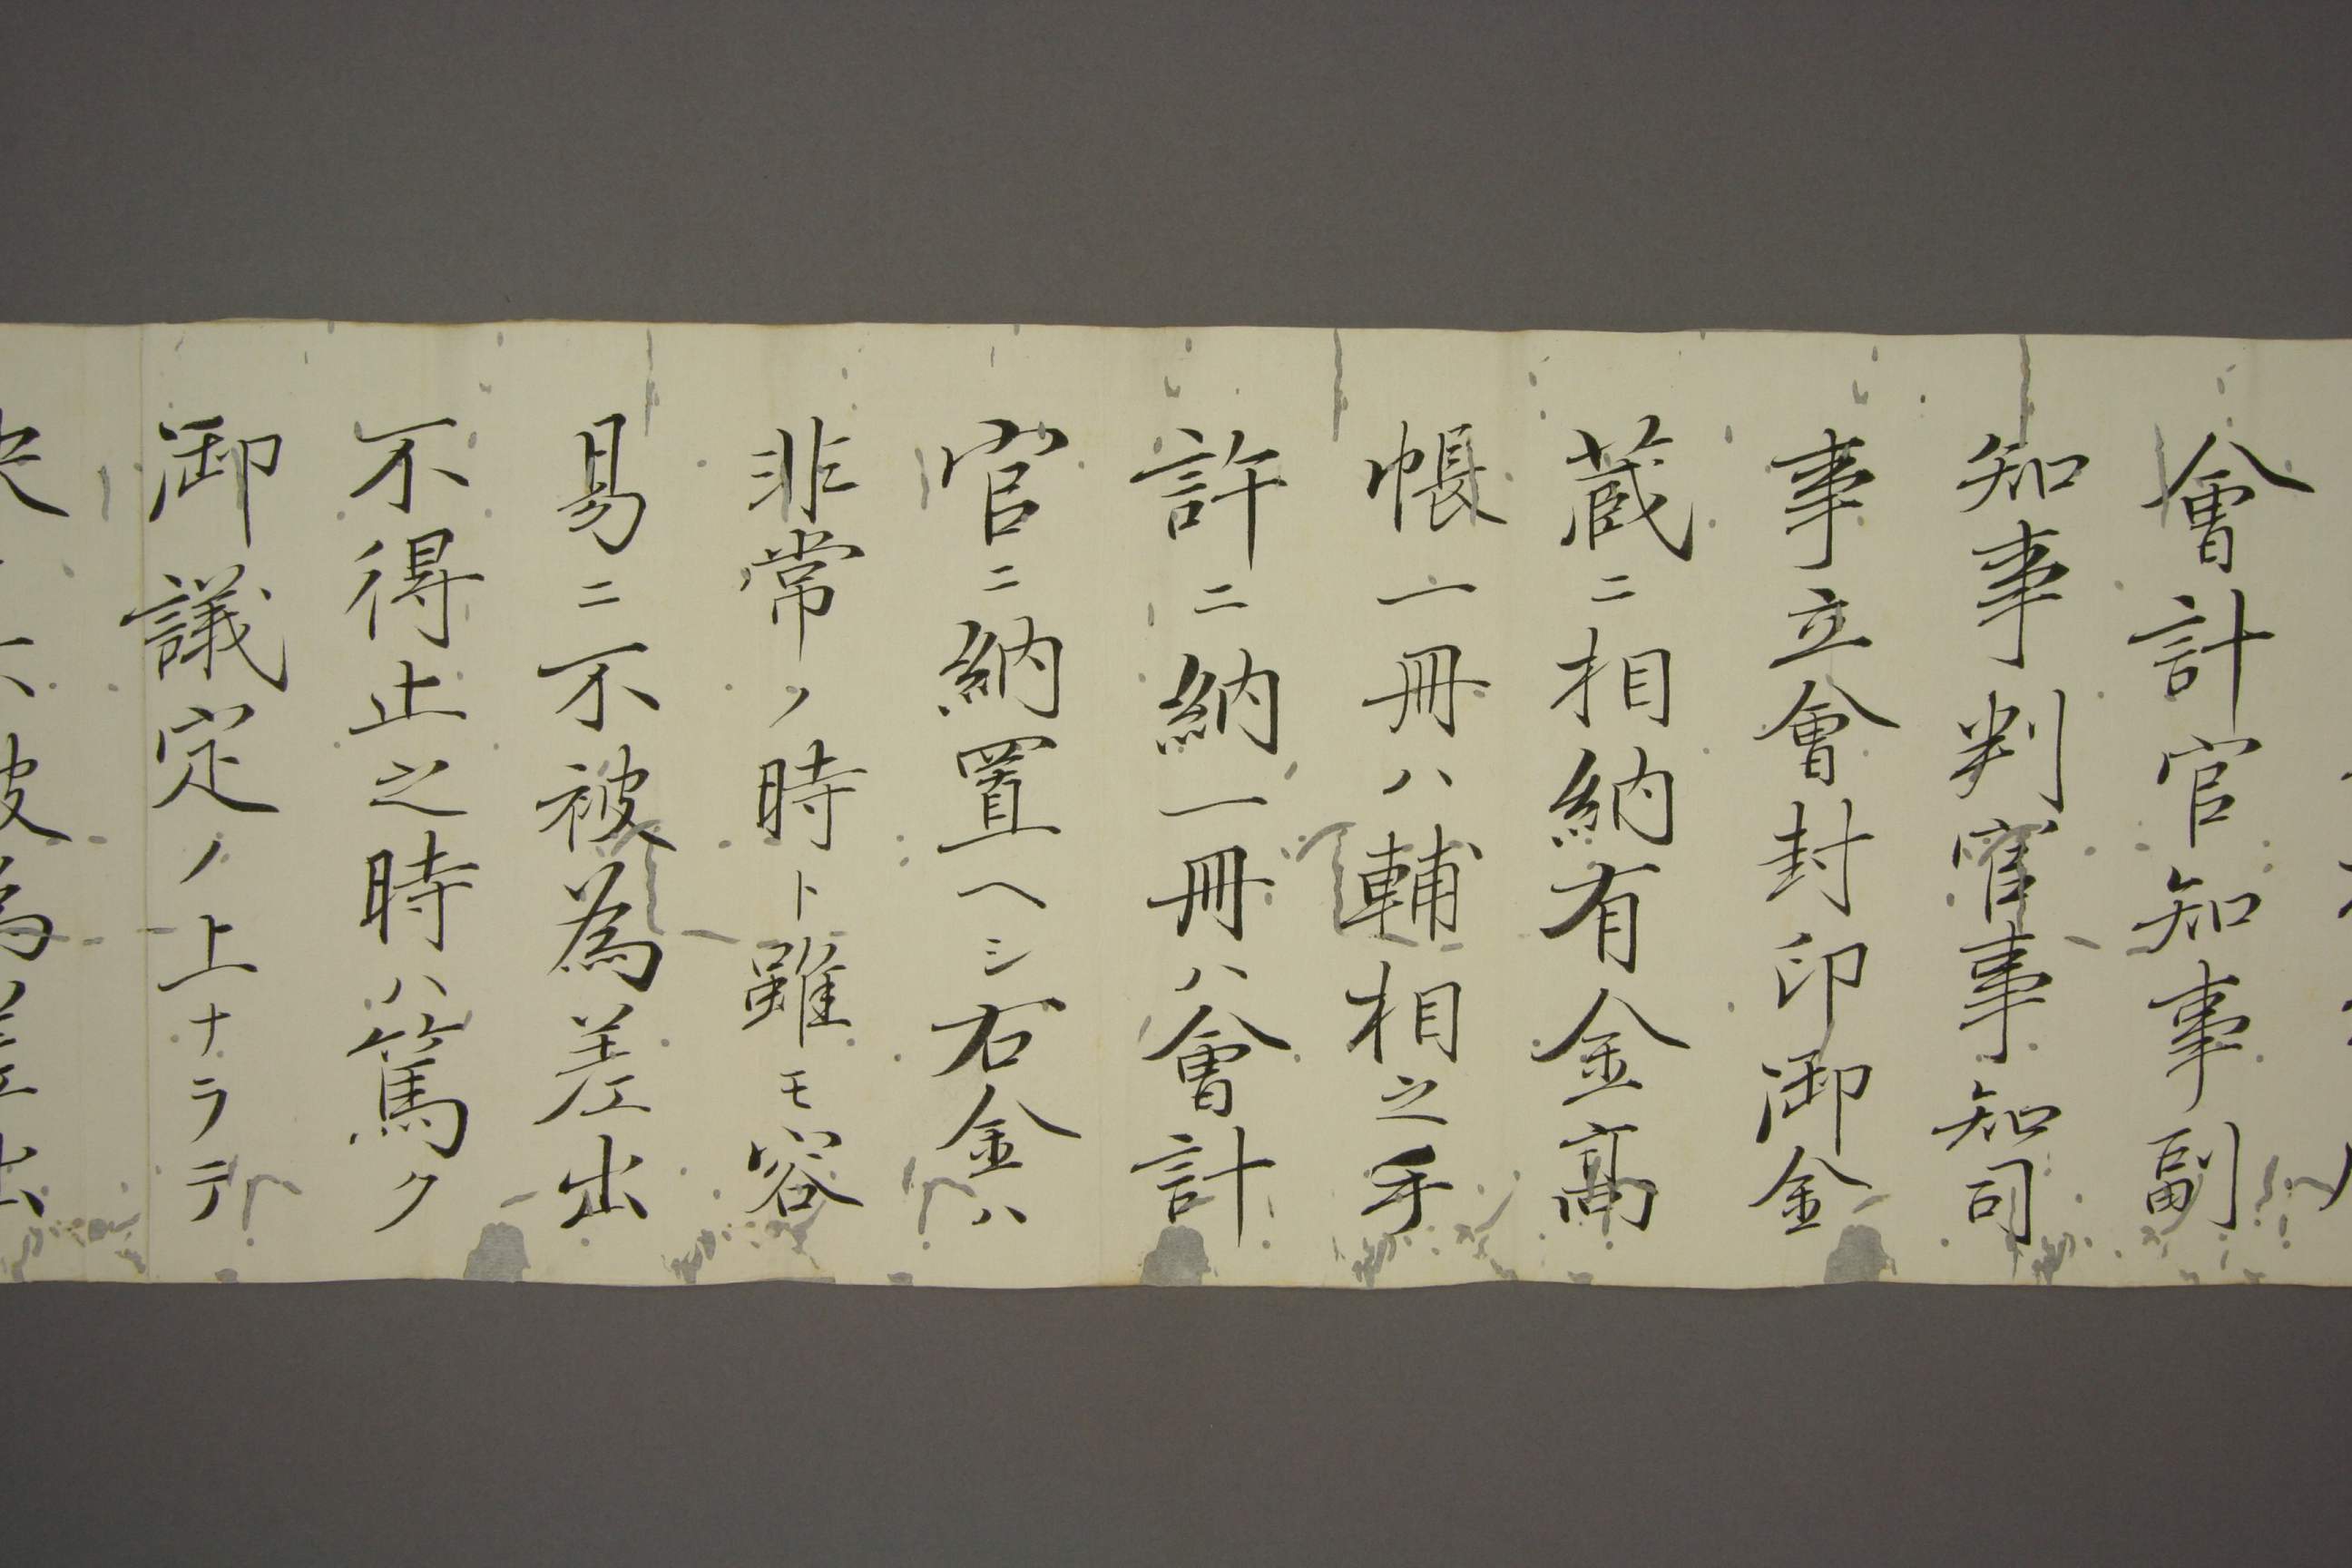 會計官知事副
知事判官事知司
事立會封印御金
蔵ニ相納有金高
帳一冊ハ輔相之手
許ニ納一冊ハ會計
官ニ納置ヘシ右金ハ
非常ノ時ト雖モ容
易ニ不被為差出
不得止之時ハ篤ク
御議定ノ上ナラテ
決
被為差出